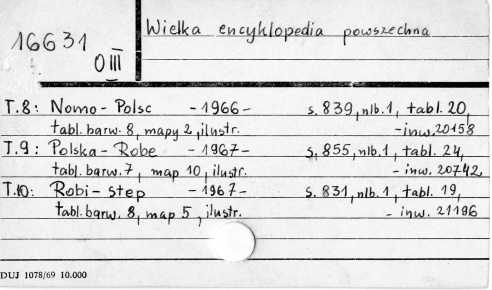 16631
O III
Wielka encyklopedia powszechna
T.8: Nomo - Polsc - 1966 - s. 839, nlb. 1, tabl. 20,
tabl. barw. 8, mapy 2, ilustr. - inw. 20158
T.9: Polska - Robe - 1967 - s. 855, nlb. 1, tabl. 24,
tabl. barw. 7, map 10, ilustr. - inw. 20742
T.10: Robi - step - 1967 - s. 831, nlb. 1, tabl. 19,
tabl. barw. 8, map 5, ilustr. - inw. 21196
DUJ 1078/69 10.000